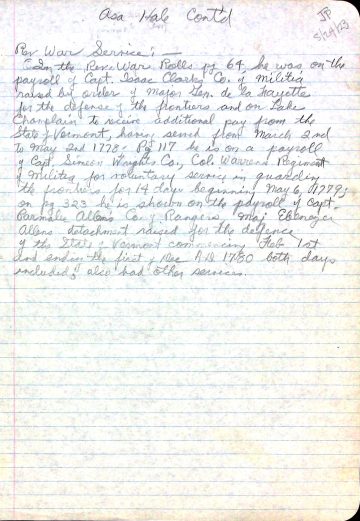 Asa Hale Cont'd
JP
5/24/73
Rev War Service: —
In the Rev War Rolls pg 64, he was on the
payroll of Capt. Isaac Clarks Co. of Militia
raised by order of Major Gen. de la Fayette
for the defense of the frontiers and on Lake
Champlain to receive additional pay from the
State of Vermont, having served from March 2nd
to May 2nd 1778. Pg 117 he is on a payroll
of Capt. Simeon Wrights Co., Col. Warrens Regiment
of Militia for voluntary service in guarding
the frontiers for 14 days beginning May 6, 1779;
on pg 323 he is shown on the payroll of Capt.
Parmalie Allens Co. of Rangers, Maj Ebenezer
Allens detachment raised for the defence
of the State of Vermont commencing Feb 1st
and ending the first of Dec A.D. 1780 both days
included; also had other services.